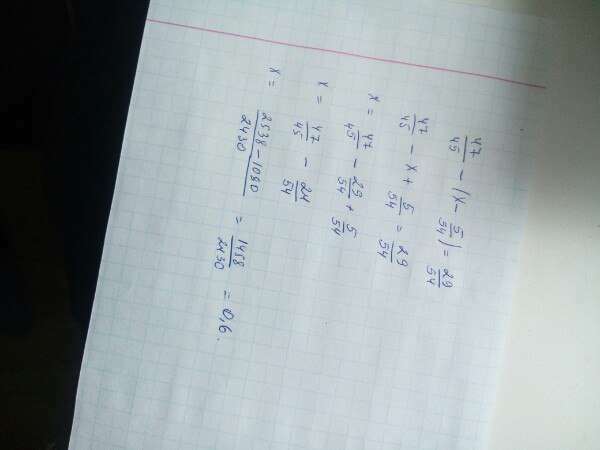 47/45 - (x - 5/54) = 29/54
47/45 - x + 5/54 = 29/54
x = 47/45 - 29/54 + 5/54
x = 47/45 - 24/54
x = (2538 - 1080)/2430 = 1458/2430 = 0,6.